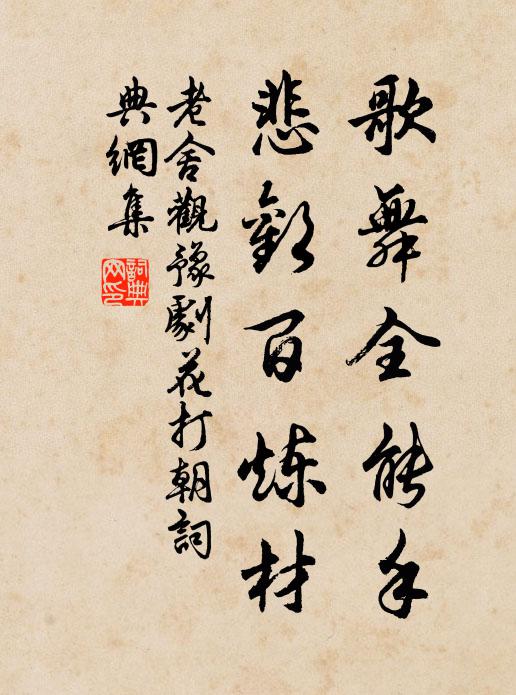 歌舞全能手
悲歡百煉材
老舍觀豫劇花打朝詞
典網集
詞典
网印